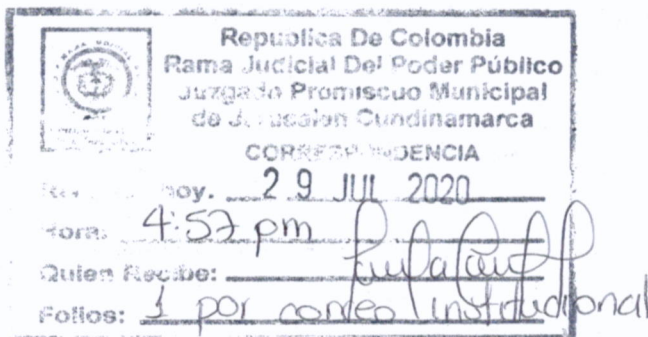 Republica De Colombia
Rama Judicial Del Poder Público
Juzgado Promiscuo Municipal
de Jerusalen Cundinamarca
CORRESPONDENCIA
hoy. 29 JUL 2020
Hora: 4:57 pm
Quien Recibe:
Folios: 1 por correo institucional